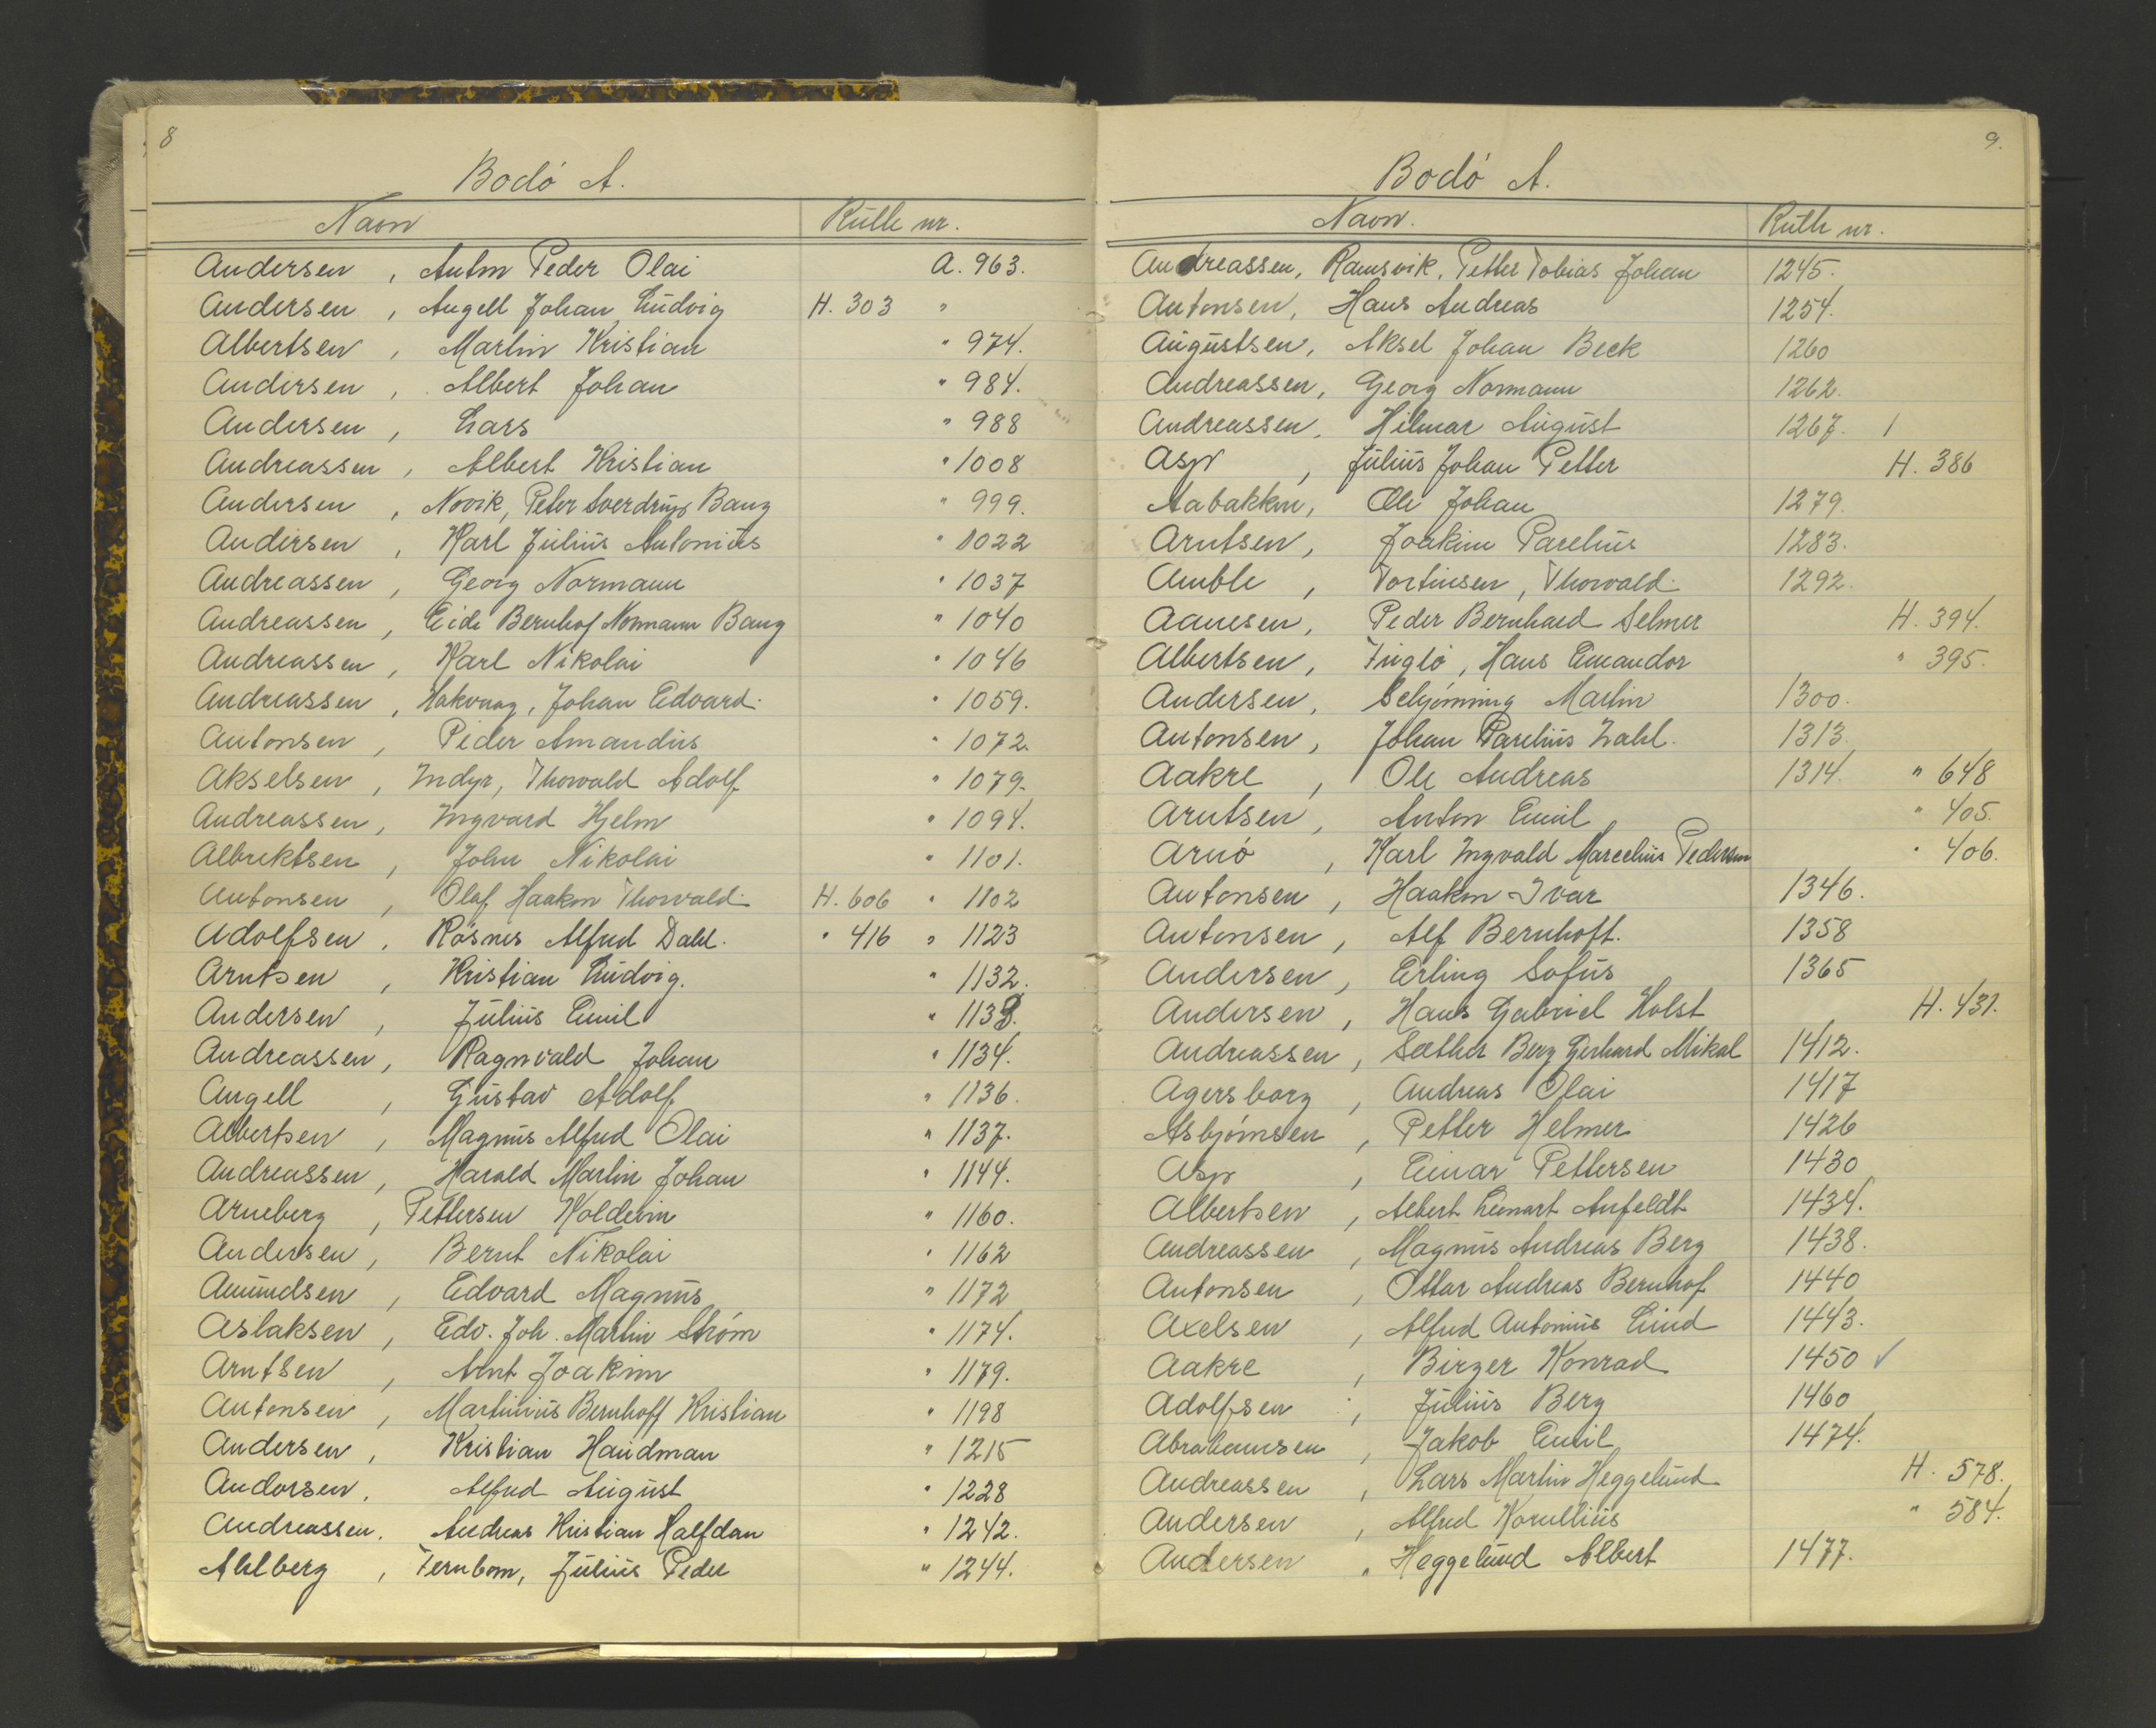 8
Bodó A.
Navn Rulle nr.
Andersen, Anton Peder Olai A. 963.
Andersen, Angell Johan Ludvig H. 303 "
Albertsen, Martin Kristian " 974.
Andersen, Albert Johan " 984.
Andersen, Lars " 988
Andreassen, Albert Kristian " 1008
Andersen, Novik, Peter Sverdrup Bang " 999.
Andersen, Karl Julius Antonius " 1022
Andreassen, Georg Normann " 1037
Andreassen, Eide Bernhof Normann Bang " 1040
Andreassen, Karl Nikolai " 1046
Andreassen, Johan Edvard. " 1059.
Antonsen, Peder Amandus " 1072.
Akselsen, Indyr, Thorvald Adolf " 1079.
Andreassen, Ingvard Hjelm " 1094.
Albrektsen, John Nikolai " 1101.
Antonsen, Olaf Haakon Thorvald H. 606 " 1102
Adolfsen, Røsnes Alfred Dahl. " 416 " 1123
Arntsen, Kristian Ludvig. " 1132.
Andersen, Julius Emil " 1133.
Andreassen, Ragnvald Johan " 1134.
Angell, Gustav Adolf " 1136.
Albertsen, Magnus Alfred Olai " 1137.
Andreassen, Harald Martin Johan " 1144.
Arneberg, Pettersen Holdeim " 1160.
Andersen, Bernt Nikolai " 1162
Amundsen, Edvard Magnus " 1172
Aslaksen, Edv. Joh. Martin Strøm " 1174.
Arntsen, Arnt Joakim " 1179.
Antonsen, Martinius Bernhoff Kristian " 1198
Andersen, Kristian Haudman " 1215
Andorsen, Alfred August " 1228
Andreassen, Andreas Kristian Halfdan " 1242.
Ahlberg, Fernbom, Julius Peder " 1244.
9.
Bodó A.
Navn. Rulle nr.
Andreassen, Ramsvik, Petter Tobias Johan 1245.
Antonsen, Hans Andreas 1254.
Augustsen, Aksel Johan Beck 1260
Andreassen, Georg Normann 1262.
Andreassen, Hilmar August 1267. 1
Asp, Julius Johan Petter H. 386
Aabakken, Ole Johan 1279.
Arntsen, Joakim Parelius 1283.
Amble, Tortinsen, Thorvald. 1292.
Aanesen, Peder Bernhard Selmer H. 394.
Albertsen, Fuglø, Hans Emandor " 395.
Andersen, Schjønning Martin 1300.
Antonsen, Johan Parelius Zahl. 1313.
Aakre, Ole Andreas 1314. " 648
Arntsen, Anton Emil " 405.
Arnø, Karl Ingvald Marcelius Pedersen " 406.
Antonsen, Haakon Ivar 1346.
Antonsen, Alf Bernhoft. 1358
Andersen, Erling Sofus 1365
Andersen, Hans Gabriel Holst H. 431.
Andreassen, Sæther Berg Gerhard Mikal 1412.
Agersborg, Andreas Olai 1417
Asbjørnsen, Petter Helmer 1426
Asp, Einar Pettersen 1430
Albertsen, Albert Lenart Anfeldt 1434.
Andreassen, Magnus Andreas Berg 1438.
Antonsen, Ottar Andreas Bernhof 1440
Axelsen, Alfred Antonius Lind 1443.
Aakre, Birger Konrad 1450 ✓
Adolfsen, Julius Berg 1460
Abrahamsen, Jakob Emil 1474.
Andreassen, Lars Martin Heggelund H. 578.
Andersen, Alfred Kornelius " 584.
Andersen, Heggelund Albert 1477.